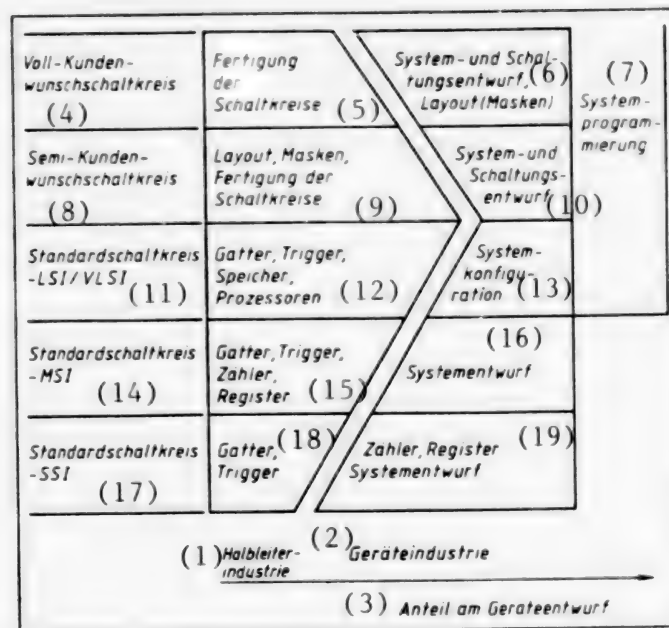 Voll-Kunden-
wunschschaltkreis
(4)
Fertigung
der
Schaltkreise
(5)
System- und Schal-
tungsentwurf, (6)
Layout (Masken)
(7)
System-
program-
mierung
Semi-Kunden-
wunschschaltkreis
(8)
Layout, Masken,
Fertigung der
Schaltkreise
(9)
System- und
Schaltungs-
entwurf (10)
Standardschaltkreis
-LSI/VLSI (11)
Gatter, Trigger,
Speicher,
Prozessoren (12)
System-
konfigu-
ration (13)
Standardschaltkreis
-MSI
(14)
Gatter, Trigger,
Zähler,
Register (15)
(16)
Systementwurf
Standardschaltkreis
-SSI
(17)
Gatter, (18)
Trigger
Zähler, Register (19)
Systementwurf
(1) Halbleiter-
industrie
(2) Geräteindustrie
(3) Anteil am Geräteentwurf